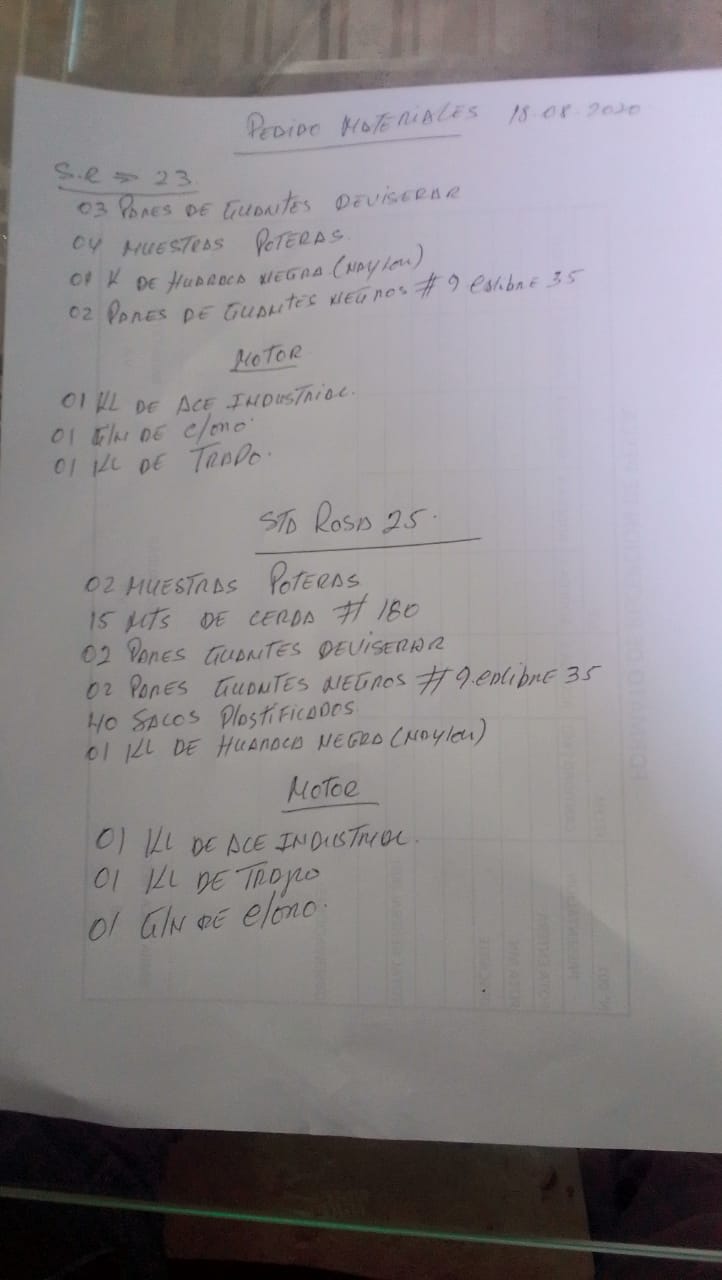 PEDIDO MATERIALES 18-08-2020
S.R => 23
03 PARES DE GUANTES DEVISERAR
04 MUESTRAS POTERAS
01 K DE HUARACA NEGRA (NAYLON)
02 PARES DE GUANTES NEGROS # 9 CALIBRE 35
MOTOR
01 KL DE ACE INDUSTRIAL.
01 GLN DE CLORO.
01 KL DE TRAPO.
STA ROSA 25.
02 MUESTRAS POTERAS
15 MTS DE CERDA # 180
02 PARES GUANTES DEVISERAR
02 PARES GUANTES NEGROS # 9. CALIBRE 35
40 SACOS PLASTIFICADOS
01 KL DE HUARACA NEGRA (NAYLON)
MOTOR
01 KL DE ACE INDUSTRIAL.
01 KL DE TRAPO
01 GLN DE CLORO.